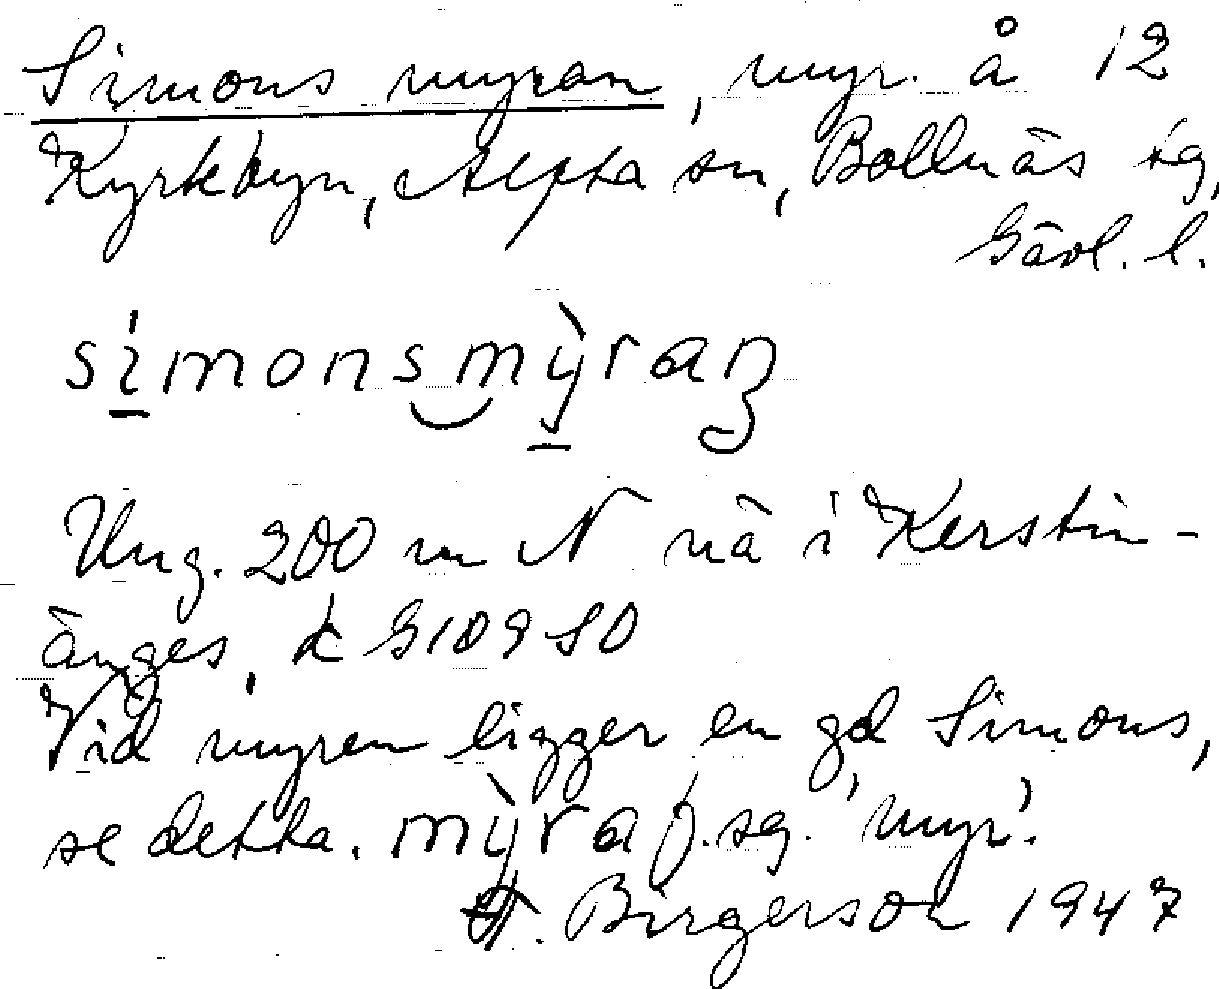 Simons myran, myr. å 12
Kyrkbyn, Alfta sn, Bollnäs tg,
Gävl. l.
simonsmỳraꞑ
Ung. 200 m N nä i Kerstin-
änges, k G109 SO
Vid myren ligger en gd Simons,
se detta. mỳra f. sg. 'myr'.
Birgerson 1947